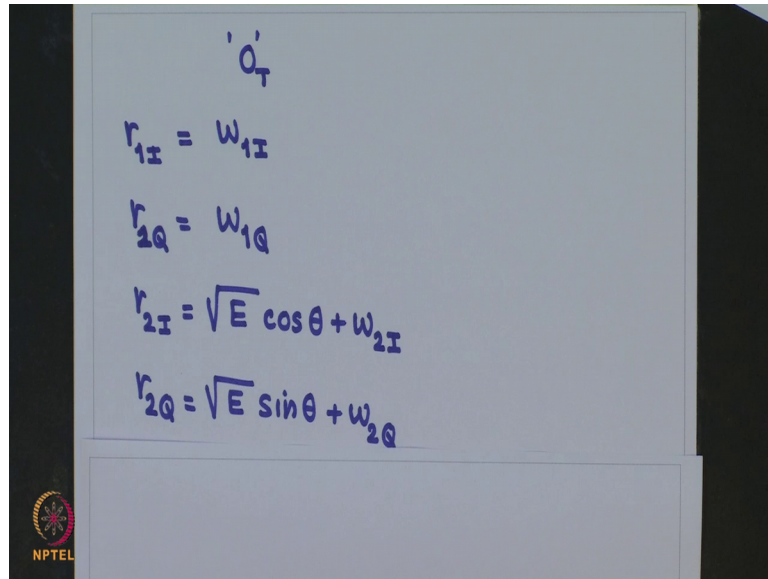 '0'T
r1I = w1I
r2Q = w1Q
r2I = √E cosθ + w2I
r2Q = √E sinθ + w2Q
NPTEL